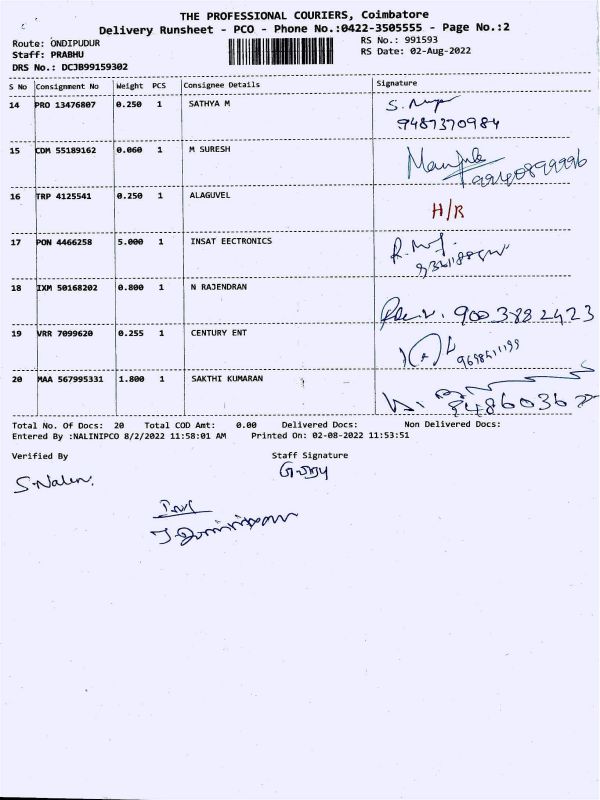 THE PROFESSIONAL COURIERS, Coimbatore
Delivery Runsheet - PCO - Phone No.:0422-3505555 - Page No.:2
Route: ONDIPUDUR
RS No.: 991593
Staff: PRABHU
RS Date: 02-Aug-2022
DRS No.: DCJB99159302
S No Consignment No Weight PCS Consignee Details Signature
14 PRO 13476807 0.250 1 SATHYA M
9487370984
15 CDM 55189162 0.060 1 M SURESH
16 TRP 4125541 0.250 1 ALAGUVEL H/R
17 PON 4466258 5.000 1 INSAT EECTRONICS
18 IXM 50168202 0.800 1 N RAJENDRAN
9003882423
19 VRR 7099620 0.255 1 CENTURY ENT
20 MAA 567995331 1.800 1 SAKTHI KUMARAN
Total No. Of Docs: 20 Total COD Amt: 0.00 Delivered Docs: Non Delivered Docs:
Entered By :NALINIPCO 8/2/2022 11:58:01 AM Printed On: 02-08-2022 11:53:51
Verified By Staff Signature
S.Nalin.